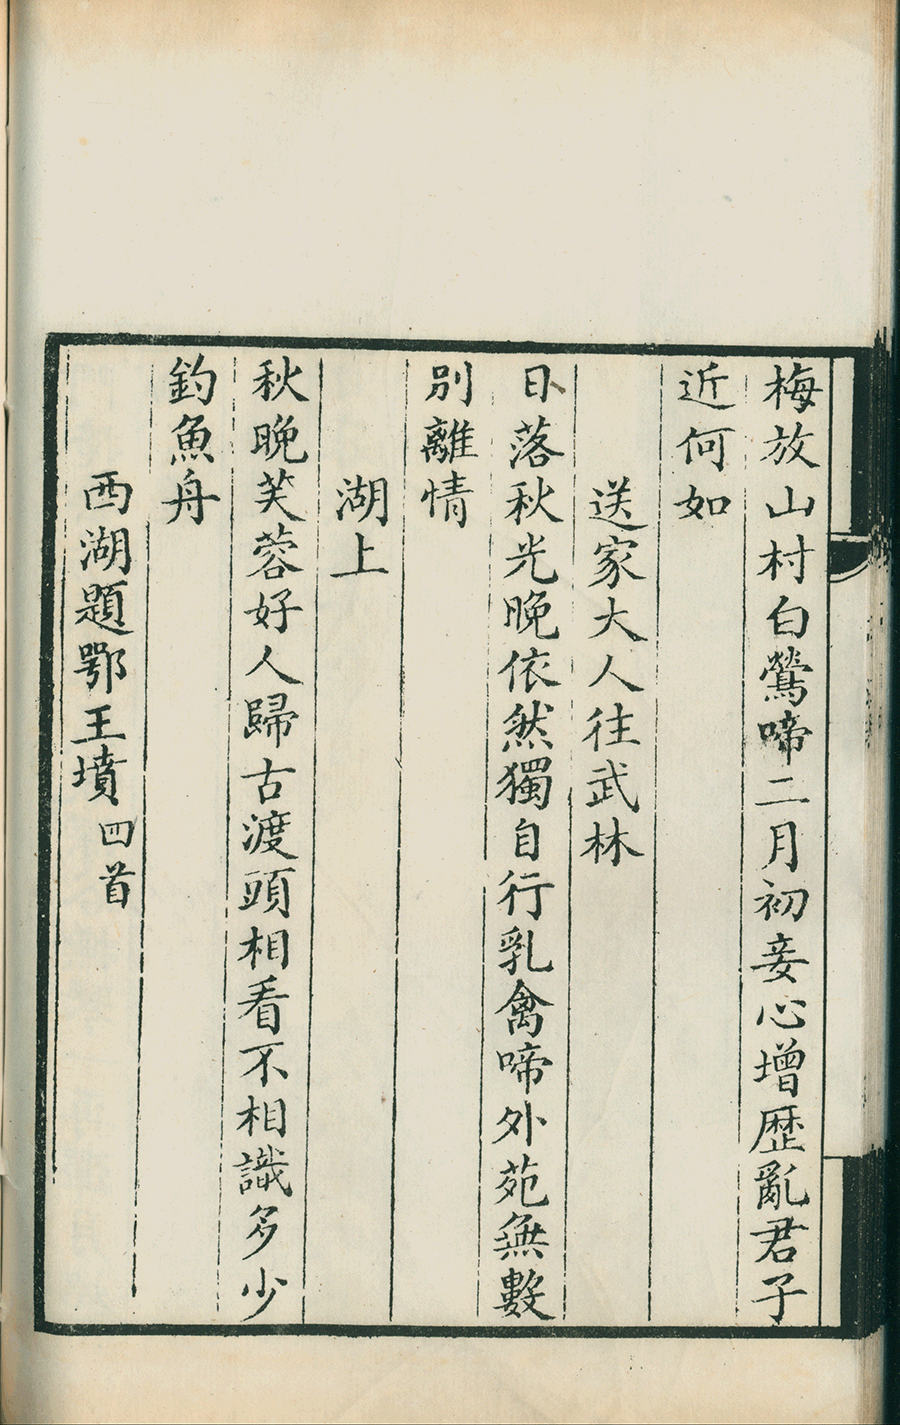 梅放山村白鶯啼二月初妾心增歴亂君子
近何如
送家大人往武林
日落秋光晚依然獨自行乳禽啼外苑無數
別離情
湖上
秋晚芙蓉好人歸古渡頭相看不相識多少
釣魚舟
西湖題鄂王墳四首